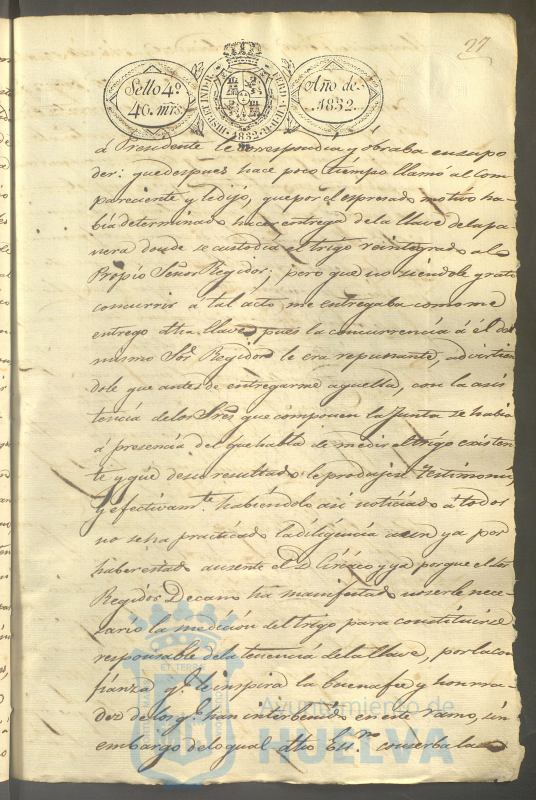 27
Sello 4º
40 mrs.
HISP. ET IND. R.
FERD. VII D. G.
1832
Año de
1832.
el Presidente le correspondia y óbraba en su po
der: que despues hace poco tiempo llamo al Com
pareciente y le dijó, que por el espresado motivo ha-
bia determinado hacer entrega de la llave de la pa-
nera donde se custodia el trigo reintegrado al
Propio Señor Regidor; pero que no siendole grato
concurrir a tal acto, me entregaba como me
entrego dha llave, pues la concurrencia á él del
mismo Sor. Regidor le era repugnante, advirtien
dole que antes de entregarme aquella, con la asis
tencia de los Sres. que componen la Junta se habia
á presencia del que habla de medir el trigo existen
te y que de su resultado le produjese testimonio
y efectivamte. habiendolo asi noticiado a todos
no se ha practicado la diligencia aun ya por
haber estado ausente el D. Ciriaco y ya porque el Sor.
Regidor Decano ha manifestado no serle nece-
sario la medicion del trigo para constituirse
responsable de la tenencia de la llave, por la con
fianza qe. le inspira la buena fee y honrra-
dez de los qe. han interbenido en este ramo, sin
embargo de lo qual dho Essno. conserba la
ET TERRÆ
Ayuntamiento de
HUELVA